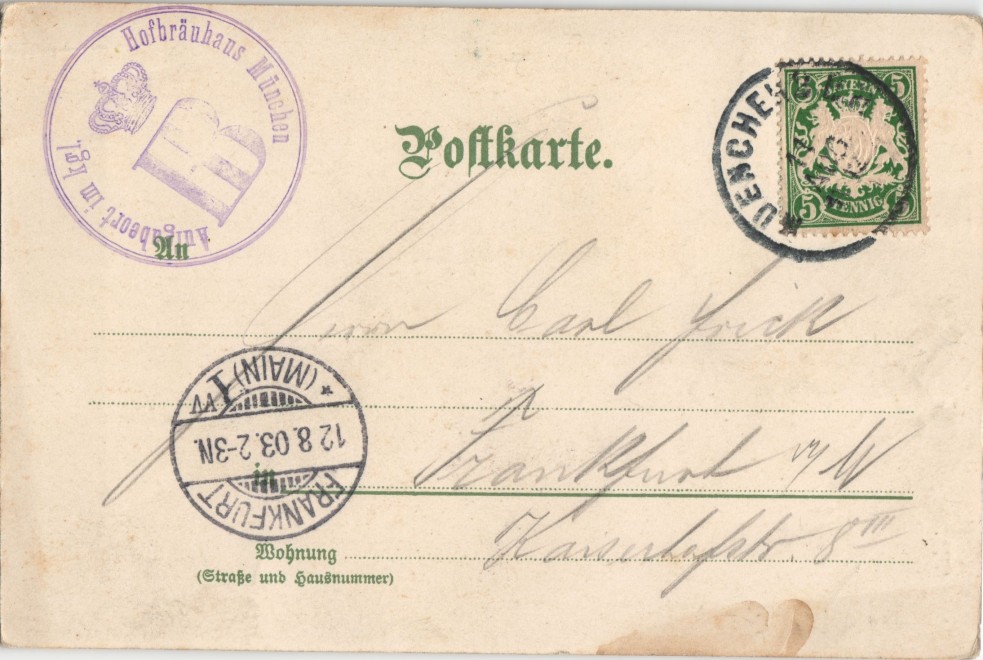 Hofbräuhaus München
Aufgabeort im Kgl.
HB
Postkarte.
MUENCHEN
BAYERN
5 5
5 5
PFENNIG
An
Herrn Carl Frick
FRANKFURT
12.8.03.2-3N.
* (MAIN) 1
in Frankfurt a/M
Wohnung Kaiserhofstr. 8 III
(Straße und Hausnummer)